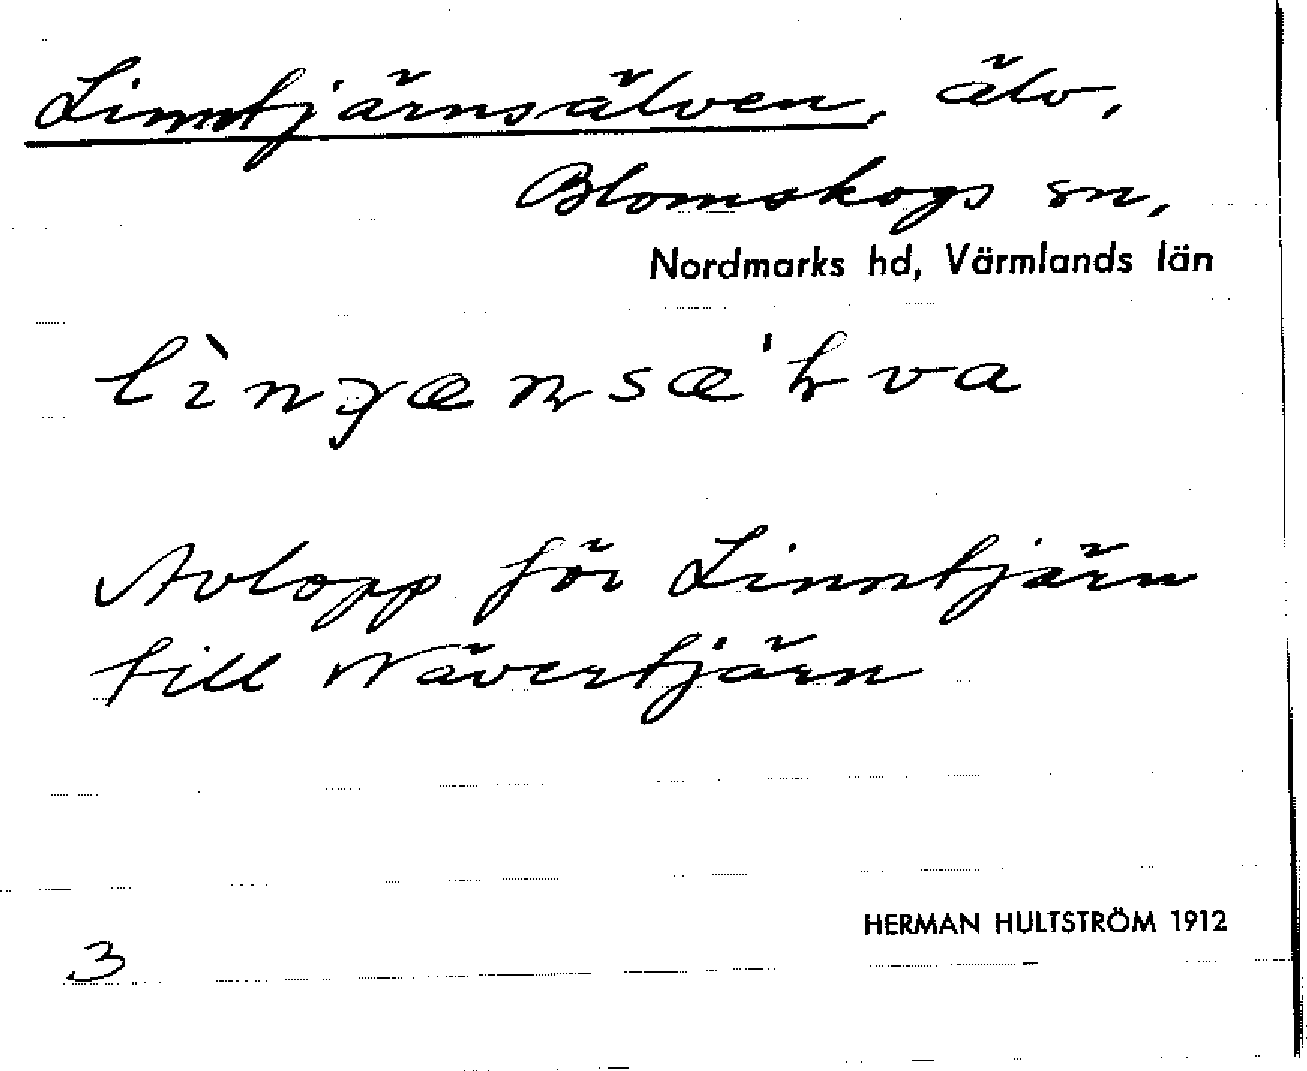 Linntjärnsälven, älv,
Blomskogs sn,
Nordmarks hd, Värmlands län
Avlopp för Linntjärn
till Nävertjärn
HERMAN HULTSTRÖM 1912
3